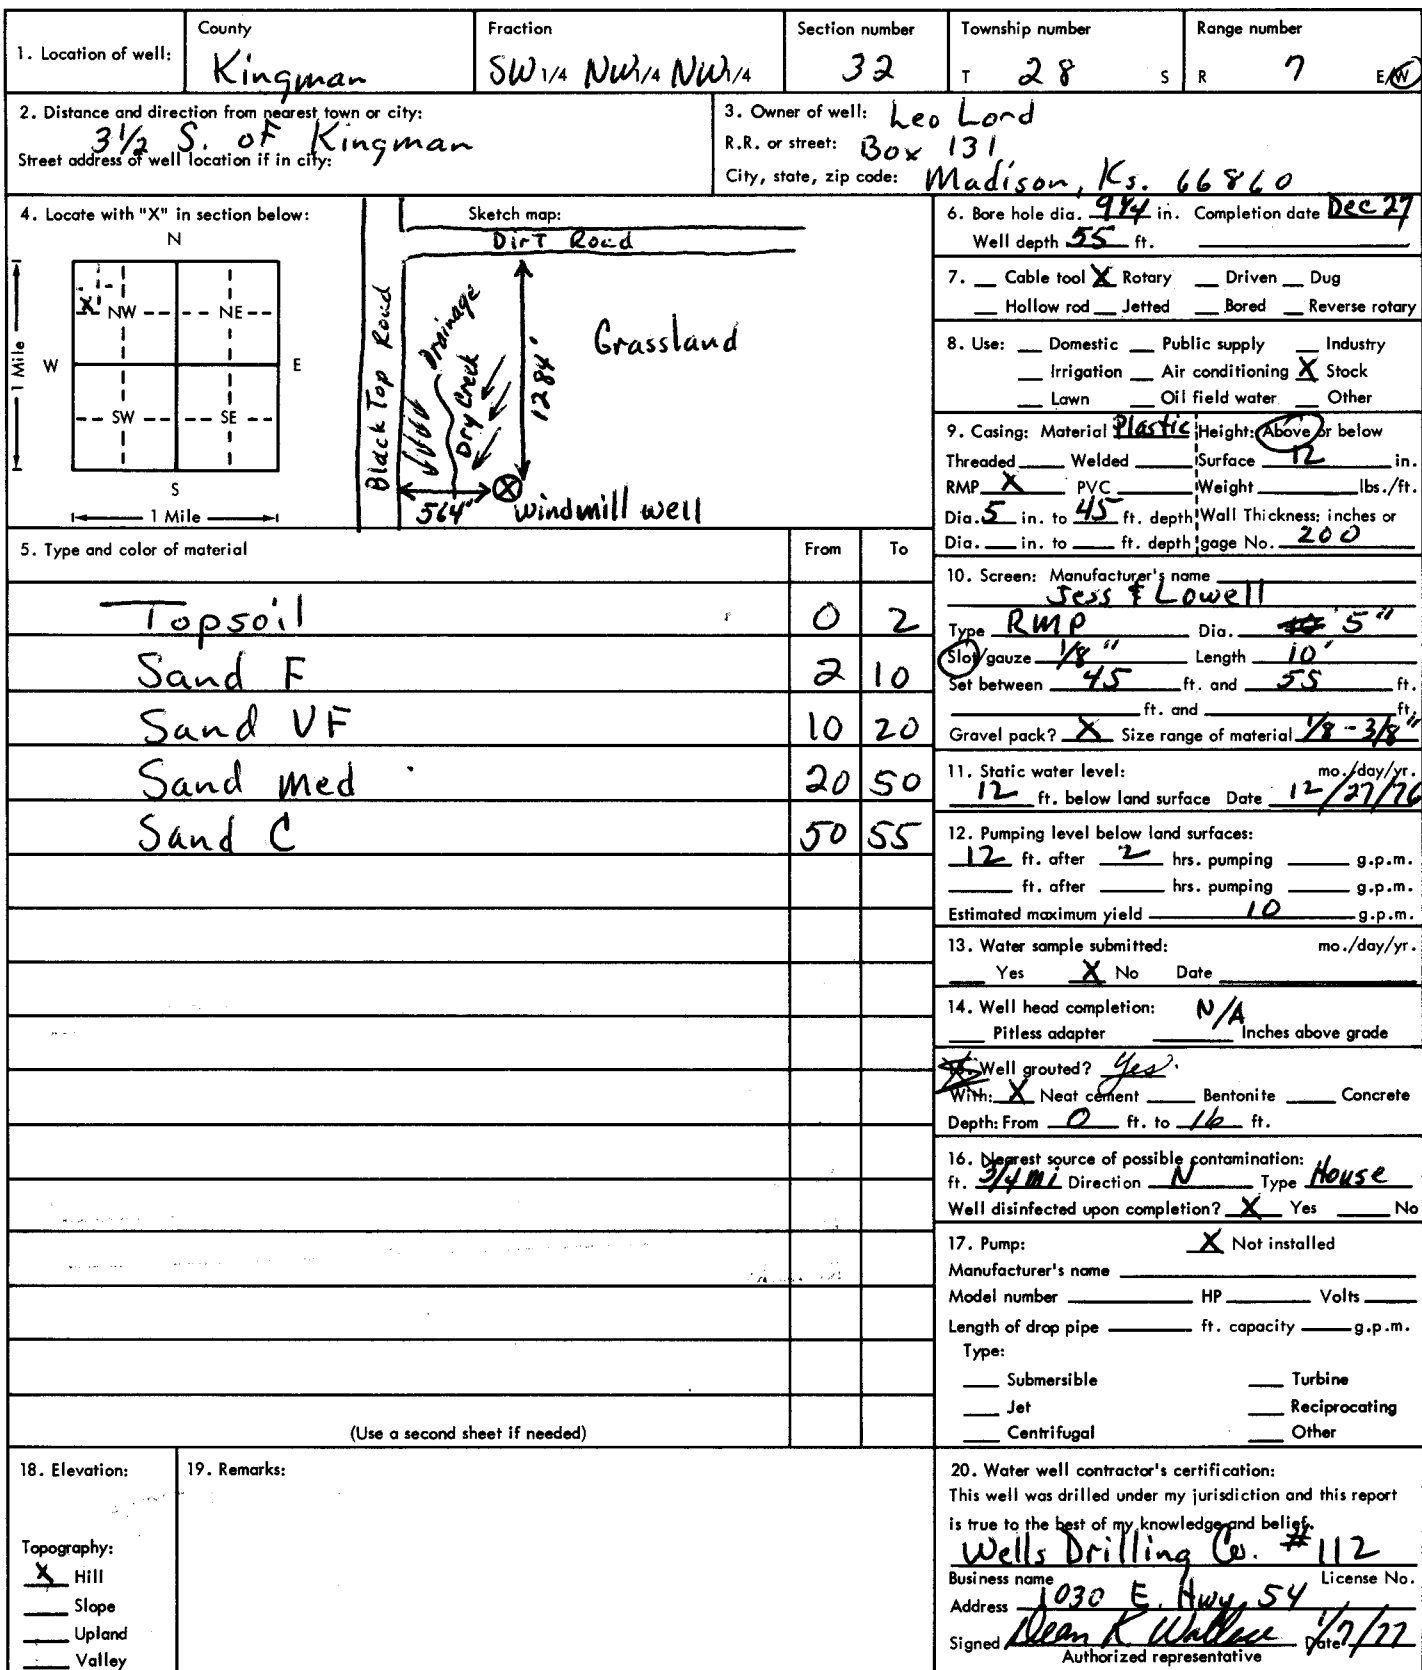 1. Location of well:
County
Kingman
Fraction
SW 1/4 NW 1/4 NW 1/4
Section number
32
Township number
T 28 S
Range number
R 7 E/W
2. Distance and direction from nearest town or city:
3 1/2 S. of Kingman
Street address of well location if in city:
3. Owner of well: Leo Lord
R.R. or street: Box 131
City, state, zip code: Madison, Ks. 66860
4. Locate with "X" in section below:
N
X NW NE
W E
1 Mile
SW SE
S
1 Mile
Sketch map:
Dirt Road
Black Top Road
Drainage
Dry Creek
1284'
Grassland
564'
Windmill well
5. Type and color of material From To
Topsoil 0 2
Sand F 2 10
Sand VF 10 20
Sand Med 20 50
Sand C 50 55
(Use a second sheet if needed)
6. Bore hole dia. 9 1/4 in. Completion date Dec 27
Well depth 55 ft.
7. Cable tool X Rotary Driven Dug
Hollow rod Jetted Bored Reverse rotary
8. Use: Domestic Public supply Industry
Irrigation Air conditioning X Stock
Lawn Oil field water Other
9. Casing: Material Plastic Height: Above or below
Threaded Welded Surface 12 in.
RMP X PVC Weight lbs./ft.
Dia. 5 in. to 45 ft. depth Wall Thickness: inches or
Dia. in. to ft. depth gage No. 200
10. Screen: Manufacturer's name
Jess & Lowell
Type RMP Dia. 5"
Slot/gauze 1/8" Length 10'
Set between 45 ft. and 55 ft.
ft. and ft.
Gravel pack? X Size range of material 1/8 - 3/8"
11. Static water level: mo./day/yr.
12 ft. below land surface Date 12/27/76
12. Pumping level below land surfaces:
12 ft. after 2 hrs. pumping g.p.m.
ft. after hrs. pumping g.p.m.
Estimated maximum yield 10 g.p.m.
13. Water sample submitted: mo./day/yr.
Yes X No Date
14. Well head completion: N/A
Pitless adapter Inches above grade
Well grouted? Yes.
With: X Neat cement Bentonite Concrete
Depth: From 0 ft. to 16 ft.
16. Nearest source of possible contamination:
ft. 3/4 mi Direction N Type House
Well disinfected upon completion? X Yes No
17. Pump: X Not installed
Manufacturer's name
Model number HP Volts
Length of drop pipe ft. capacity g.p.m.
Type:
Submersible Turbine
Jet Reciprocating
Centrifugal Other
18. Elevation:
Topography:
X Hill
Slope
Upland
Valley
19. Remarks:
20. Water well contractor's certification:
This well was drilled under my jurisdiction and this report
is true to the best of my knowledge and belief.
Wells Drilling Co. #112
Business name License No.
Address 1030 E. Hwy. 54
Signed Dean K Wallace Date 1/7/77
Authorized representative